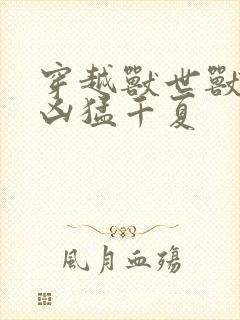 穿越獸世獸
凶猛千夏
風月血殤